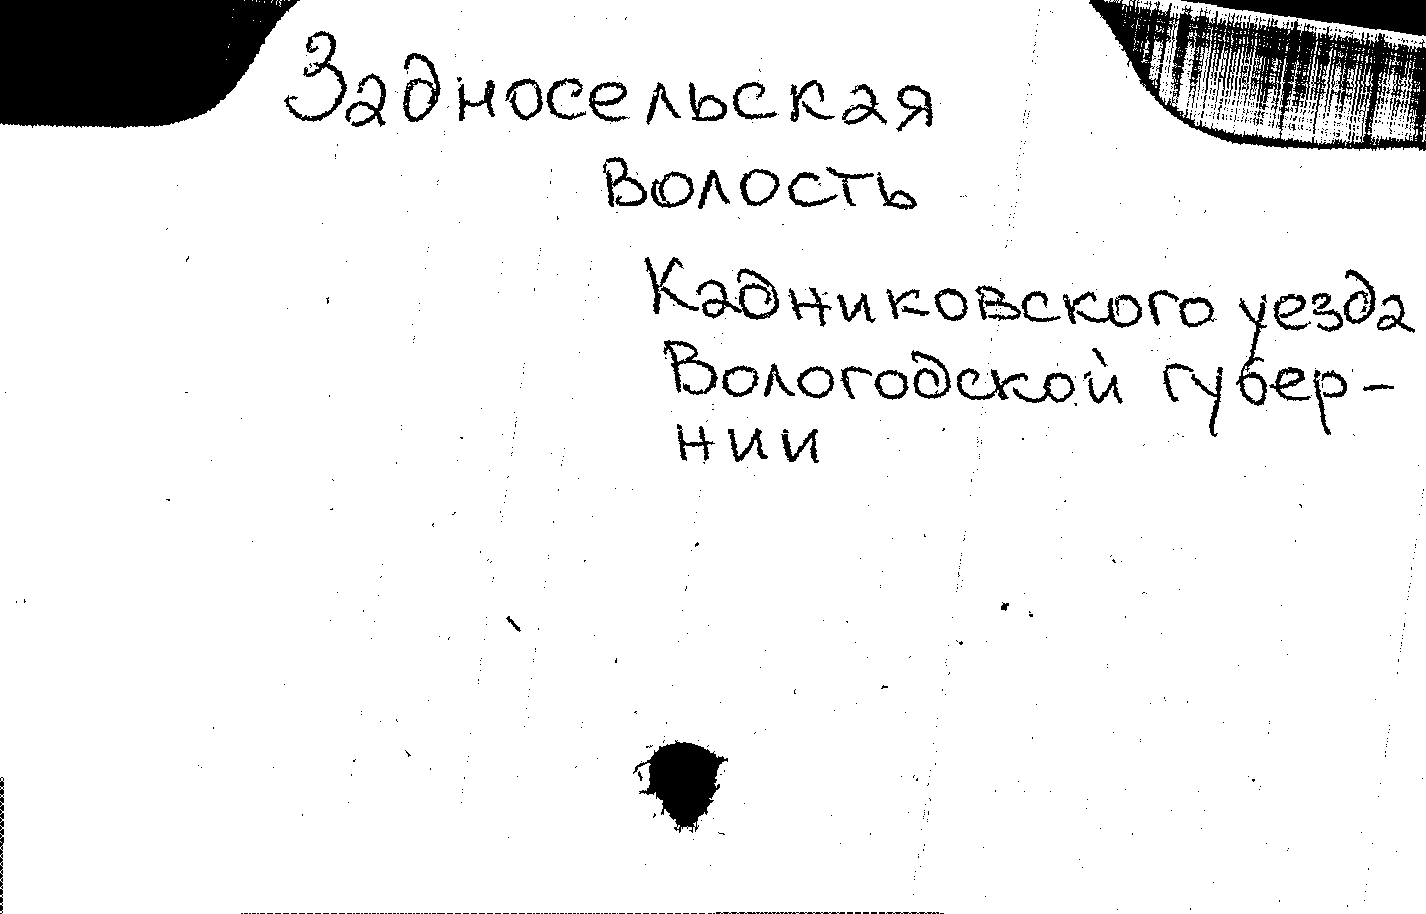 Задносельская
волость
Кадниковского уезда
Вологодской губер-
нии